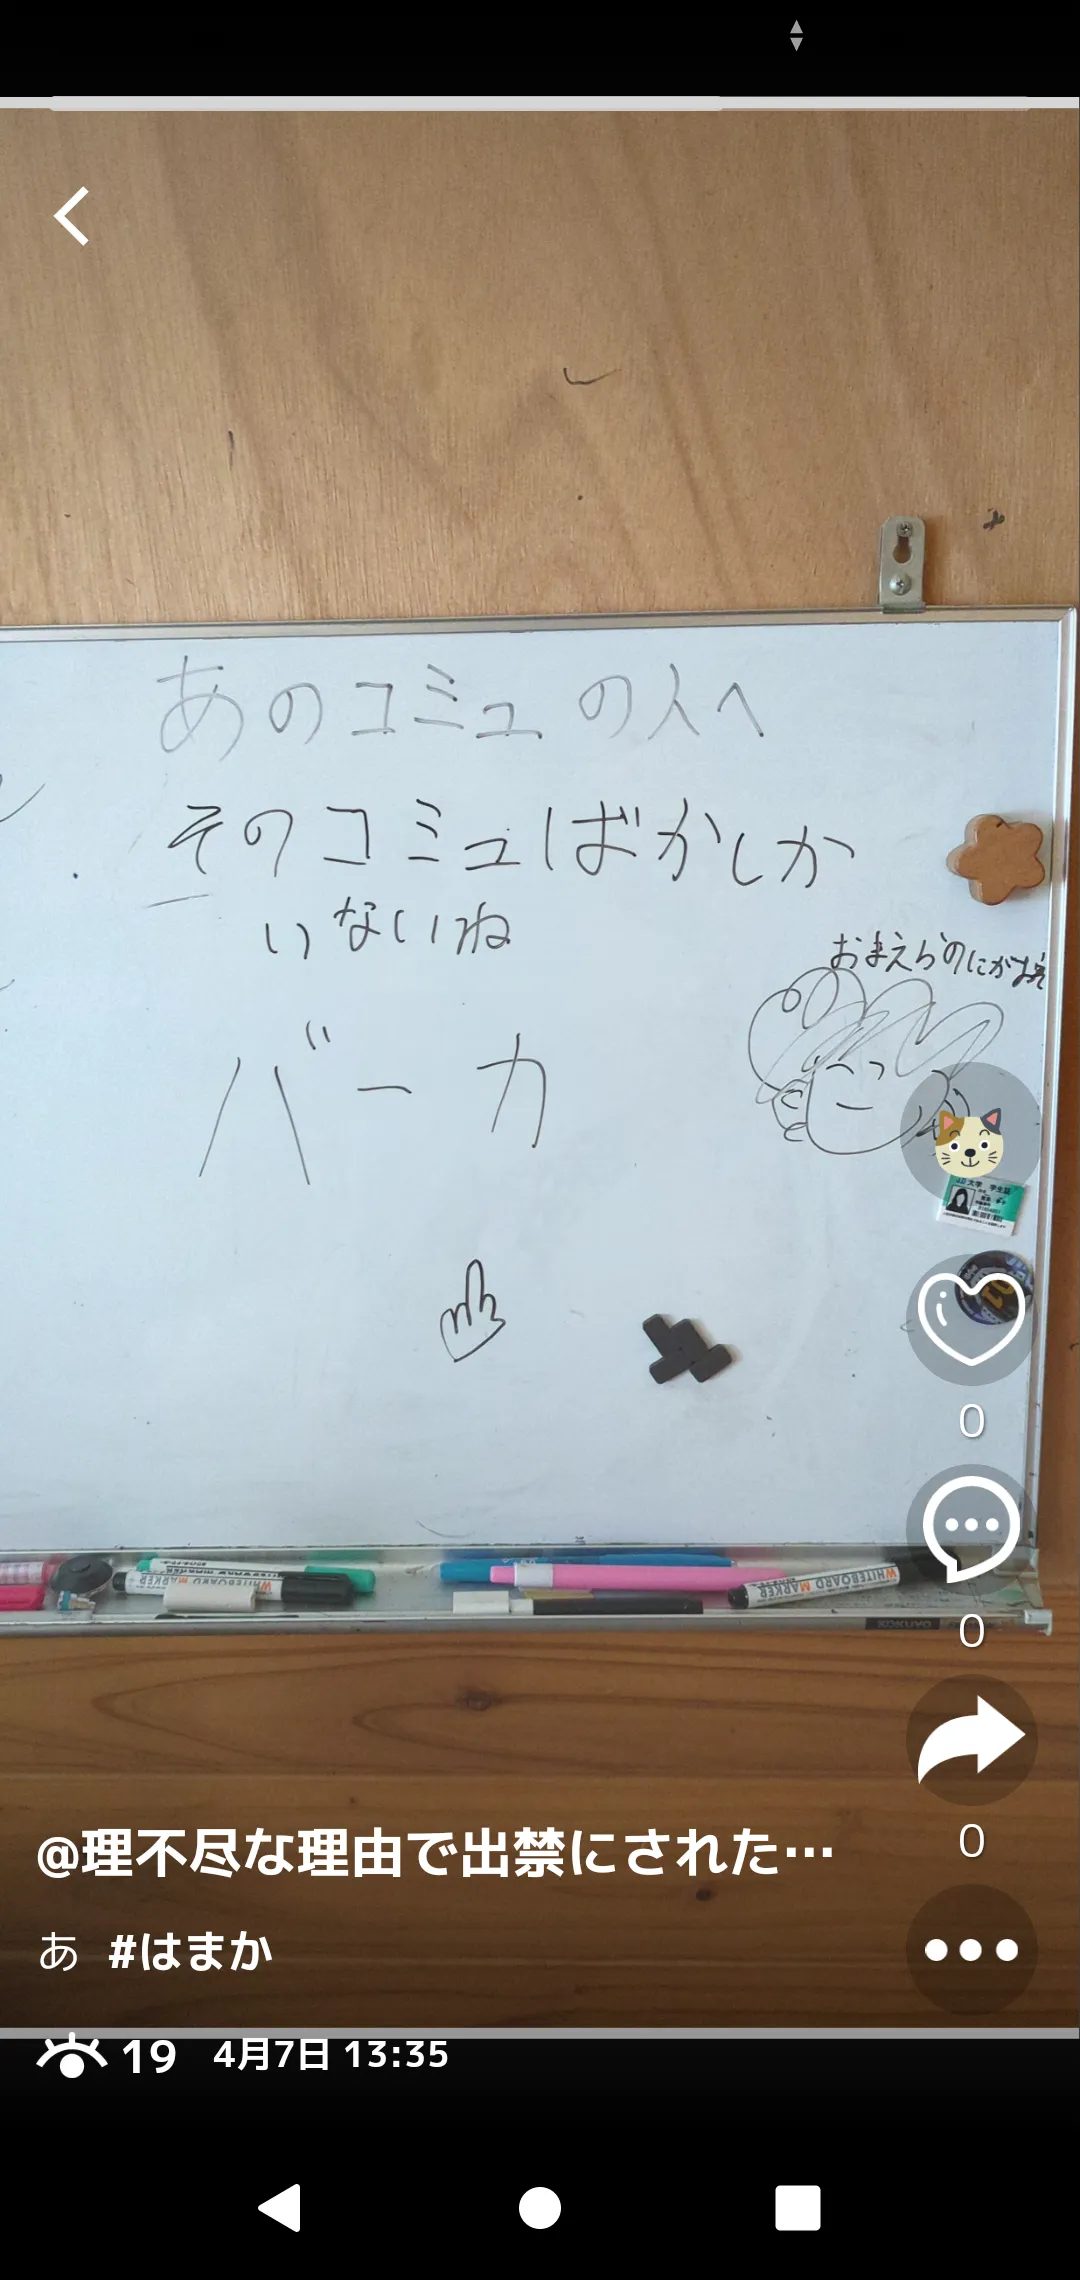 あのコミュの人へ
そのコミュばかしか
いないね
バーカ
おまえらのにがお
大学 学生証
WHITEBOARD MARKER
WHITEBOARD MARKER
0
0
0
@理不尽な理由で出禁にされた…
あ #はまか
19 4月7日 13:35